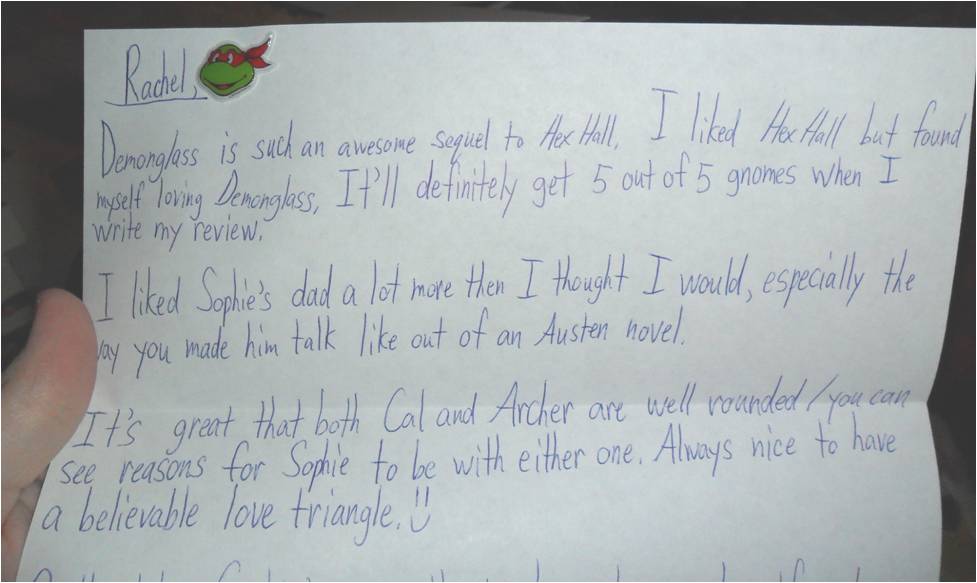 Rachel,
Demonglass is such an awesome sequel to Hex Hall. I liked Hex Hall but found
myself loving Demonglass. It'll definitely get 5 out of 5 gnomes when I
write my review.
I liked Sophie's dad a lot more then I thought I would, especially the
way you made him talk like out of an Austen novel.
It's great that both Cal and Archer are well rounded/you can
see reasons for Sophie to be with either one. Always nice to have
a believable love triangle. U